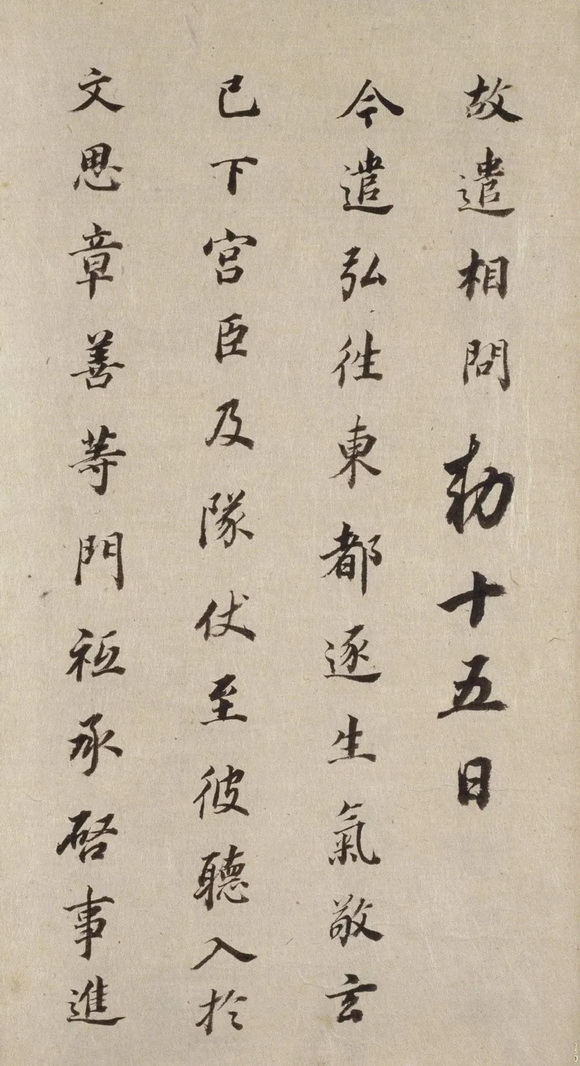 故遣相問勅十五日
今遣弘往東都逐生氣敬玄
已下宮臣及隊仗至彼聽入於
文思章善等門祗承啓事進